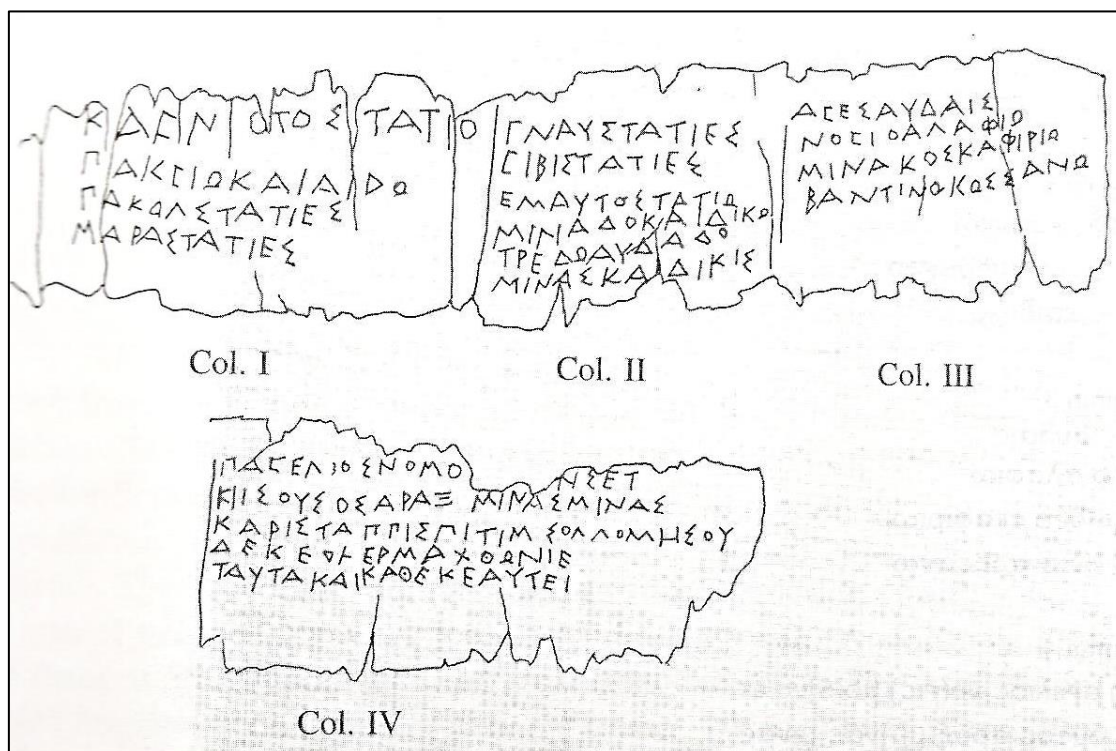 ΚΑFΙΝΟΤΟΣΤΑΤΙΟ
ΠΑΚϹΙΩΚΑΙΑΙΔΩ
ΠΑΚΩΛΣΤΑΤΙΕΣ
ΜΑΡΑΣΤΑΤΙΕΣ
Col. I
ΓΝΑΥΣΤΑΤΙΕΣ
ϹΙΒΙΣΤΑΤΙΕΣ
ΕΜΑΥΤΟΣΤΑΤΙΩ
ΜΙΝΑΔΟΚΑΙΔΙΚΩ
ΤΡΕΔΩΑΥΔΑΔΟ
ΜΙΝΑΣΚΑΔΙΚΙΣ
Col. II
ΑϹΕΣΑΥΔΑΙΣ
ΝΟϹΙΟΑΛΑΦΙΩ
ΜΙΝΑΚΟΣΚΑΦΙΡΙΩ
ΒΑΝΤΙΝΩΚΩΣΣΑΝΩ
Col. III
ΠΑϹΕΛΙΟΣΝΟΜΟ ΝΣΕΤ
ΚΙΣΟΥΣΟΣΑΡΑΞ ΜΙΝΑΣΜΙΝΑΣ
ΚΑΡΙΣΤΑΠΠΙΣΠΙΤΙΜΣΟΛΛΟΜΗΣΟΥ
ΔΕΚΕΟΗΕΡΜΑΧΘΩΝΙΕ
ΤΑΥΤΑΚΑΙΚΑΘΕΚΕΑΥΤΕΙ
Col. IV